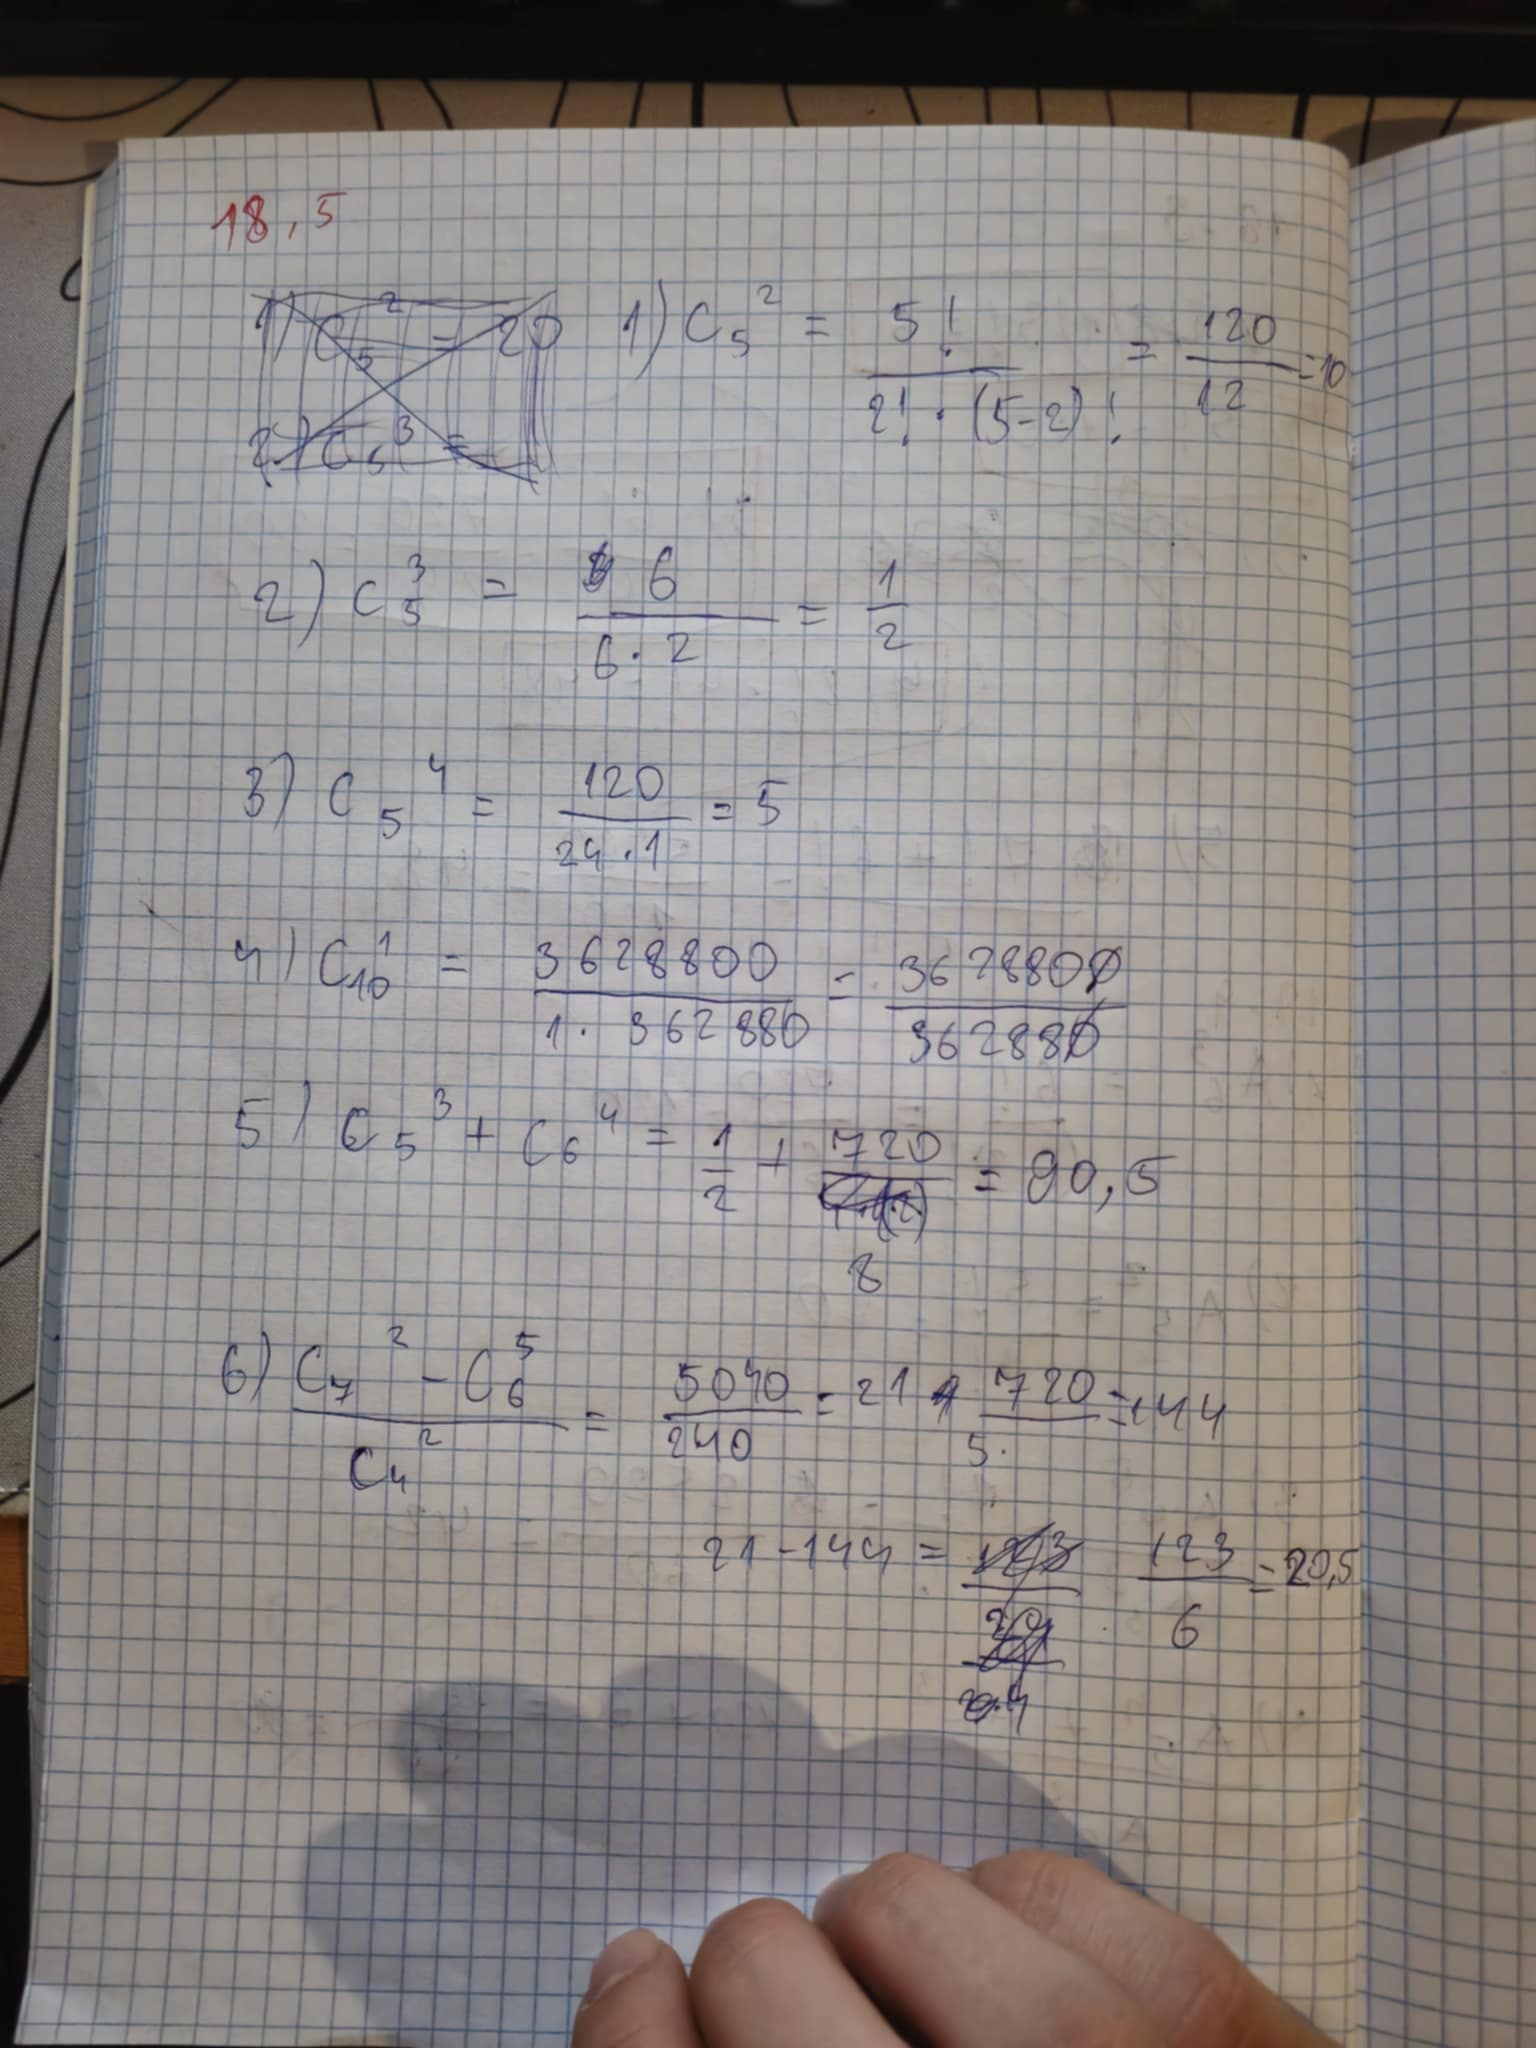 18,5
1) C₅² = 20
2) C₅³ =
1) C₅² = 5! / (2! · (5-2)!) = 120/12 = 10
2) C₅³ = 6 / (6 · 2) = 1/2
3) C₅⁴ = 120 / (24 · 1) = 5
4) C₁₀¹ = 3628800 / (1 · 362880) = 3628800 / 362880
5) C₅³ + C₆⁴ = 1/2 + 720/8 = 90,5
6) (C₇² - C₆⁵) / C₄² = 5040/240 = 21 720/5· = 144
21 - 144 = 123/6 = 20,5